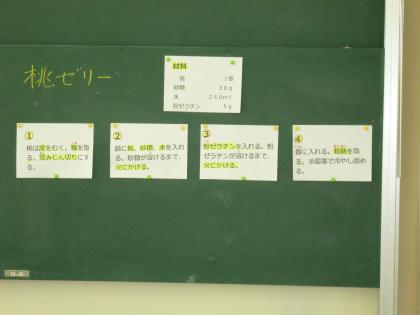 桃ゼリー
材料
桃 1個
砂糖 30g
水 250ml
粉ゼラチン 5g
①
桃は皮をむく。種を取
る。荒みじん切りにす
る。
②
鍋に桃、砂糖、水を入れ
る。砂糖が溶けるまで、
火にかける。
③
粉ゼラチンを入れる。粉
ゼラチンが溶けるまで、
火にかける。
④
器に入れる。粗熱を取
る。冷蔵庫で冷やし固め
る。